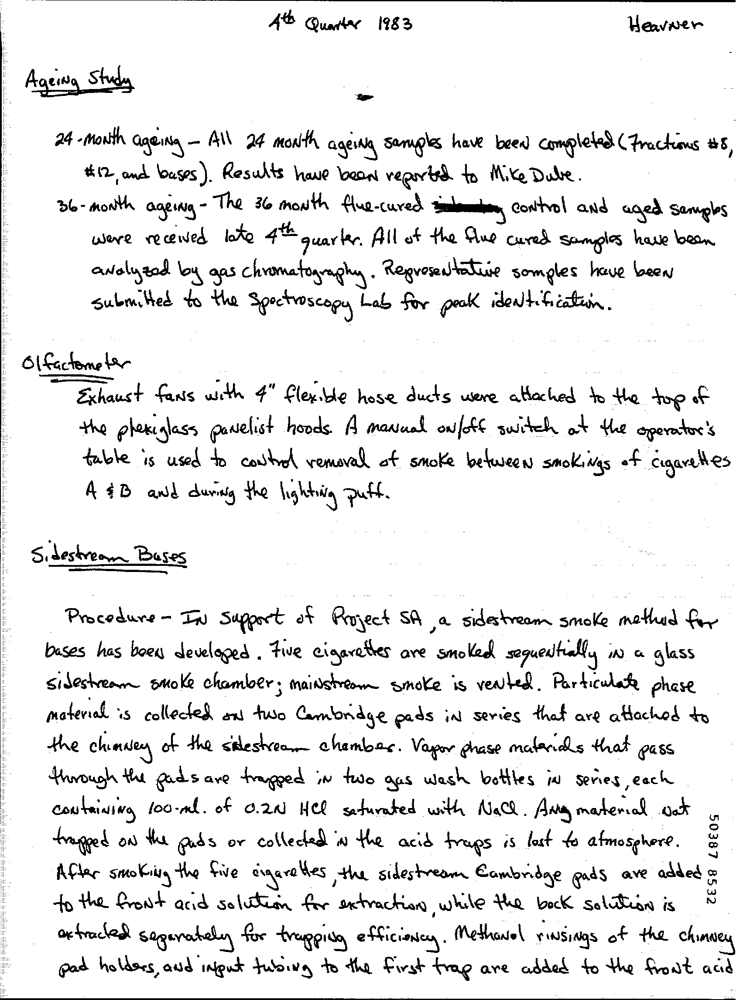 4th Quarter 1983 Heavner
Ageing Study
24-month ageing - All 24 month ageing samples have been completed (Fractions #8,
#12, and bases). Results have been reported to Mike Dube.
36-month ageing - The 36 month flue-cured control and aged samples
were received late 4th quarter. All of the flue cured samples have been
analyzed by gas chromatography. Representative samples have been
submitted to the Spectroscopy Lab for peak identification.
Olfactometer
Exhaust fans with 4" flexible hose ducts were attached to the top of
the plexiglass panelist hoods. A manual on/off switch at the operator's
table is used to control removal of smoke between smokings of cigarettes
A & B and during the lighting puff.
Sidestream Bases
Procedure - In support of Project SA, a sidestream smoke method for
bases has been developed. Five cigarettes are smoked sequentially in a glass
sidestream smoke chamber; mainstream smoke is vented. Particulate phase
material is collected on two Cambridge pads in series that are attached to
the chimney of the sidestream chamber. Vapor phase materials that pass
through the pads are trapped in two gas wash bottles in series, each
containing 100-ml. of 0.2N HCl saturated with NaCl. Any material not
trapped on the pads or collected in the acid traps is lost to atmosphere.
After smoking the five cigarettes, the sidestream Cambridge pads are added
to the front acid solution for extraction, while the back solution is
extracted separately for trapping efficiency. Methanol rinsings of the chimney
pad holders, and input tubing to the first trap are added to the front acid
50387 8532